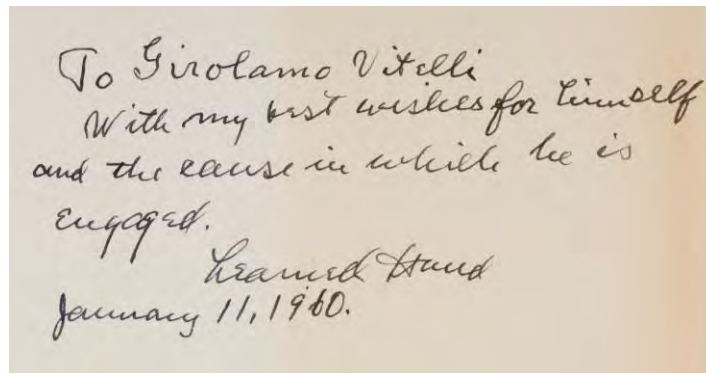 To Girolamo Vitelli
With my best wishes for himself
and the cause in which he is
engaged.
Learned Hand
January 11, 1960.